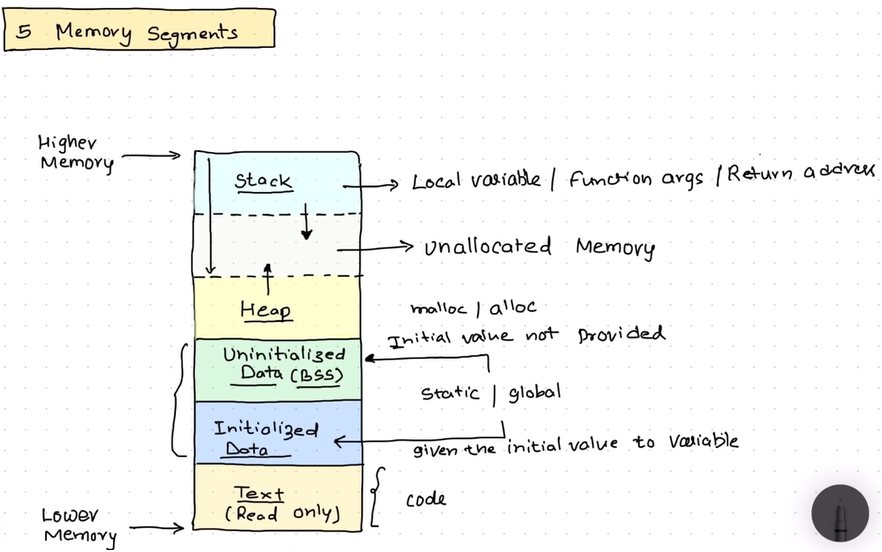 5 Memory Segments
Higher
Memory
Stack
Local variable / Function args / Return address
Unallocated Memory
Heap
malloc / alloc
Initial value not provided
Uninitialized
Data (BSS)
Static / global
Initialized
Data
given the initial value to variable
Text
(Read only)
code
Lower
Memory